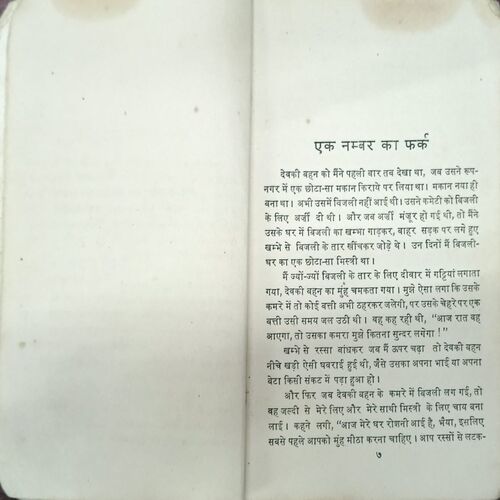 एक नम्बर का फर्क
देवकी बहन को मैंने पहली बार तब देखा था, जब उसने रूप-
नगर में एक छोटा-सा मकान किराये पर लिया था। मकान नया ही
बना था। अभी उसमें बिजली नहीं आई थी। उसने कमेटी को बिजली
के लिए अर्जी दी थी। और जब अर्जी मंजूर हो गई थी, तो मैंने
उसके घर में बिजली का खम्भा गाड़कर, बाहर सड़क पर लगे हुए
खम्भे से बिजली के तार खींचकर जोड़े थे। उन दिनों मैं बिजली-
घर का एक छोटा-सा मिस्त्री था।
मैं ज्यों-ज्यों बिजली के तार के लिए दीवार में गट्टियां लगाता
गया, देवकी बहन का मुंह चमकता गया। मुझे ऐसा लगा कि उसके
कमरे में तो कोई बत्ती अभी ठहरकर जलेगी, पर उसके चेहरे पर एक
बत्ती उसी समय जल उठी थी। वह कह रही थी, “आज रात वह
आएगा, तो उसका कमरा मुझे कितना सुन्दर लगेगा !”
खम्भे से रस्सा बांधकर जब मैं ऊपर चढ़ा तो देवकी बहन
नीचे खड़ी ऐसी घबराई हुई थी, जैसे उसका अपना भाई या अपना
बेटा किसी संकट में पड़ा हुआ हो।
और फिर जब देवकी बहन के कमरे में बिजली लग गई, तो
वह जल्दी से मेरे लिए और मेरे साथी मिस्त्री के लिए चाय बना
लाई। कहने लगी, “आज मेरे घर रोशनी आई है, भैया, इसलिए
सबसे पहले आपको मुंह मीठा करना चाहिए। आप रस्सों से लटक-
७